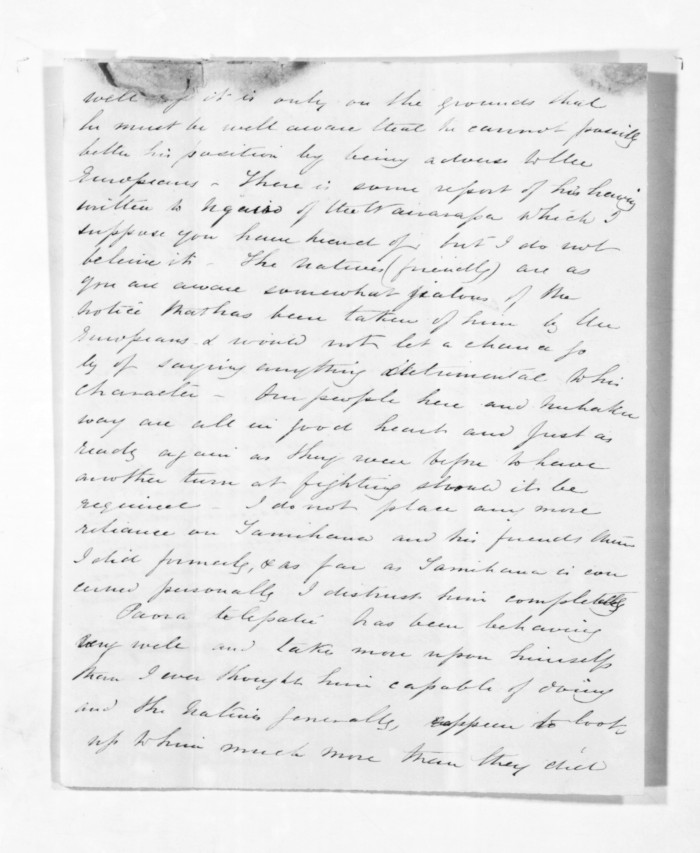 well if it is only on the grounds that
he must be well aware that he cannot possibly
better his position by being adverse to the
Europeans - There is some report of his having
written to Ngairo of the Wairarapa which I
suppose you have heard of, but I do not
beleive it - The natives (friendly) are as
you are aware somewhat jealous of the
notice that has been taken of him by the
Europeans & would not let a chance go
by of saying anything detrimental to his
character - Our people here and Nuhaka
way are all in good heart and just as
ready again as they were before to have
another turn at fighting should it be
required - I do not place any more
reliance on Tamihana and his friends than
I did formerly, & as far as Tamihana is con
cerned personally I distrust him completely
Paora telepatie has been behaving
very well and take more upon himself
than I ever thought him capable of doing
and the Natives generally, appear to look
up to him much more than they did